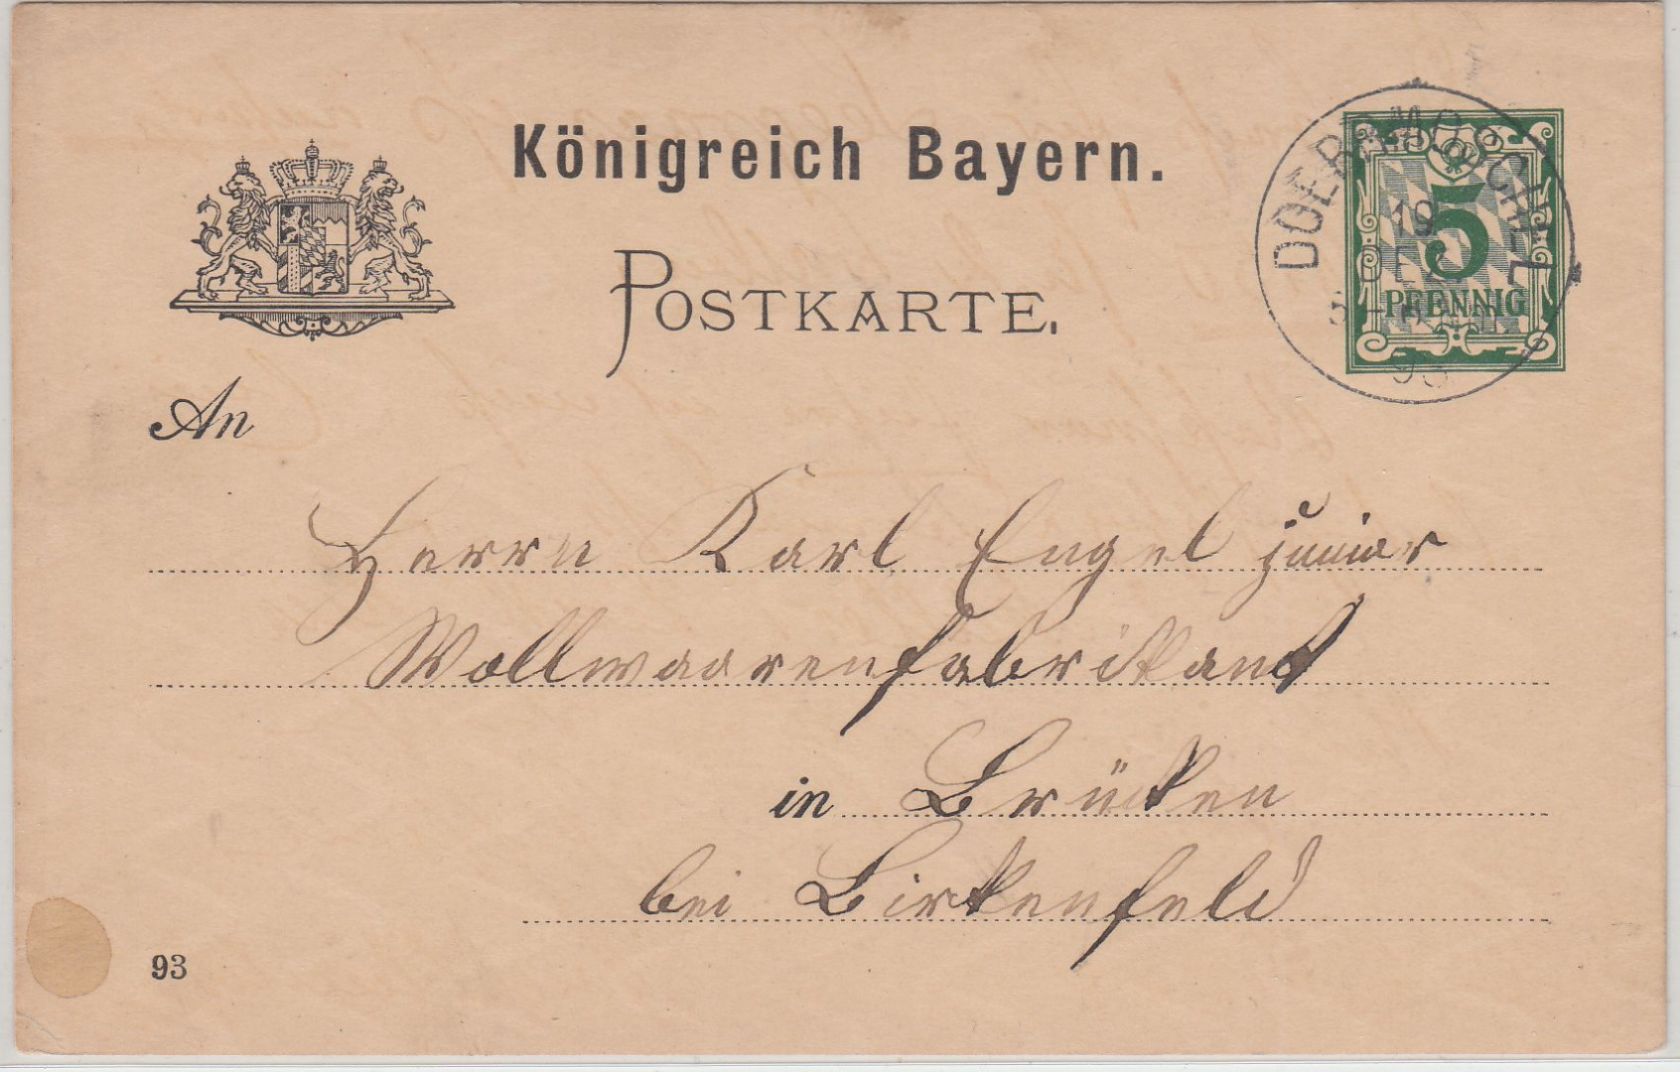 Königreich Bayern.
POSTKARTE.
DOERRMOSCHEL
19
DEZ
93
5
PFENNIG
An
Herrn Karl Engel junior
Wollwaarenfabrikant
in Brücken
bei Birkenfeld
93